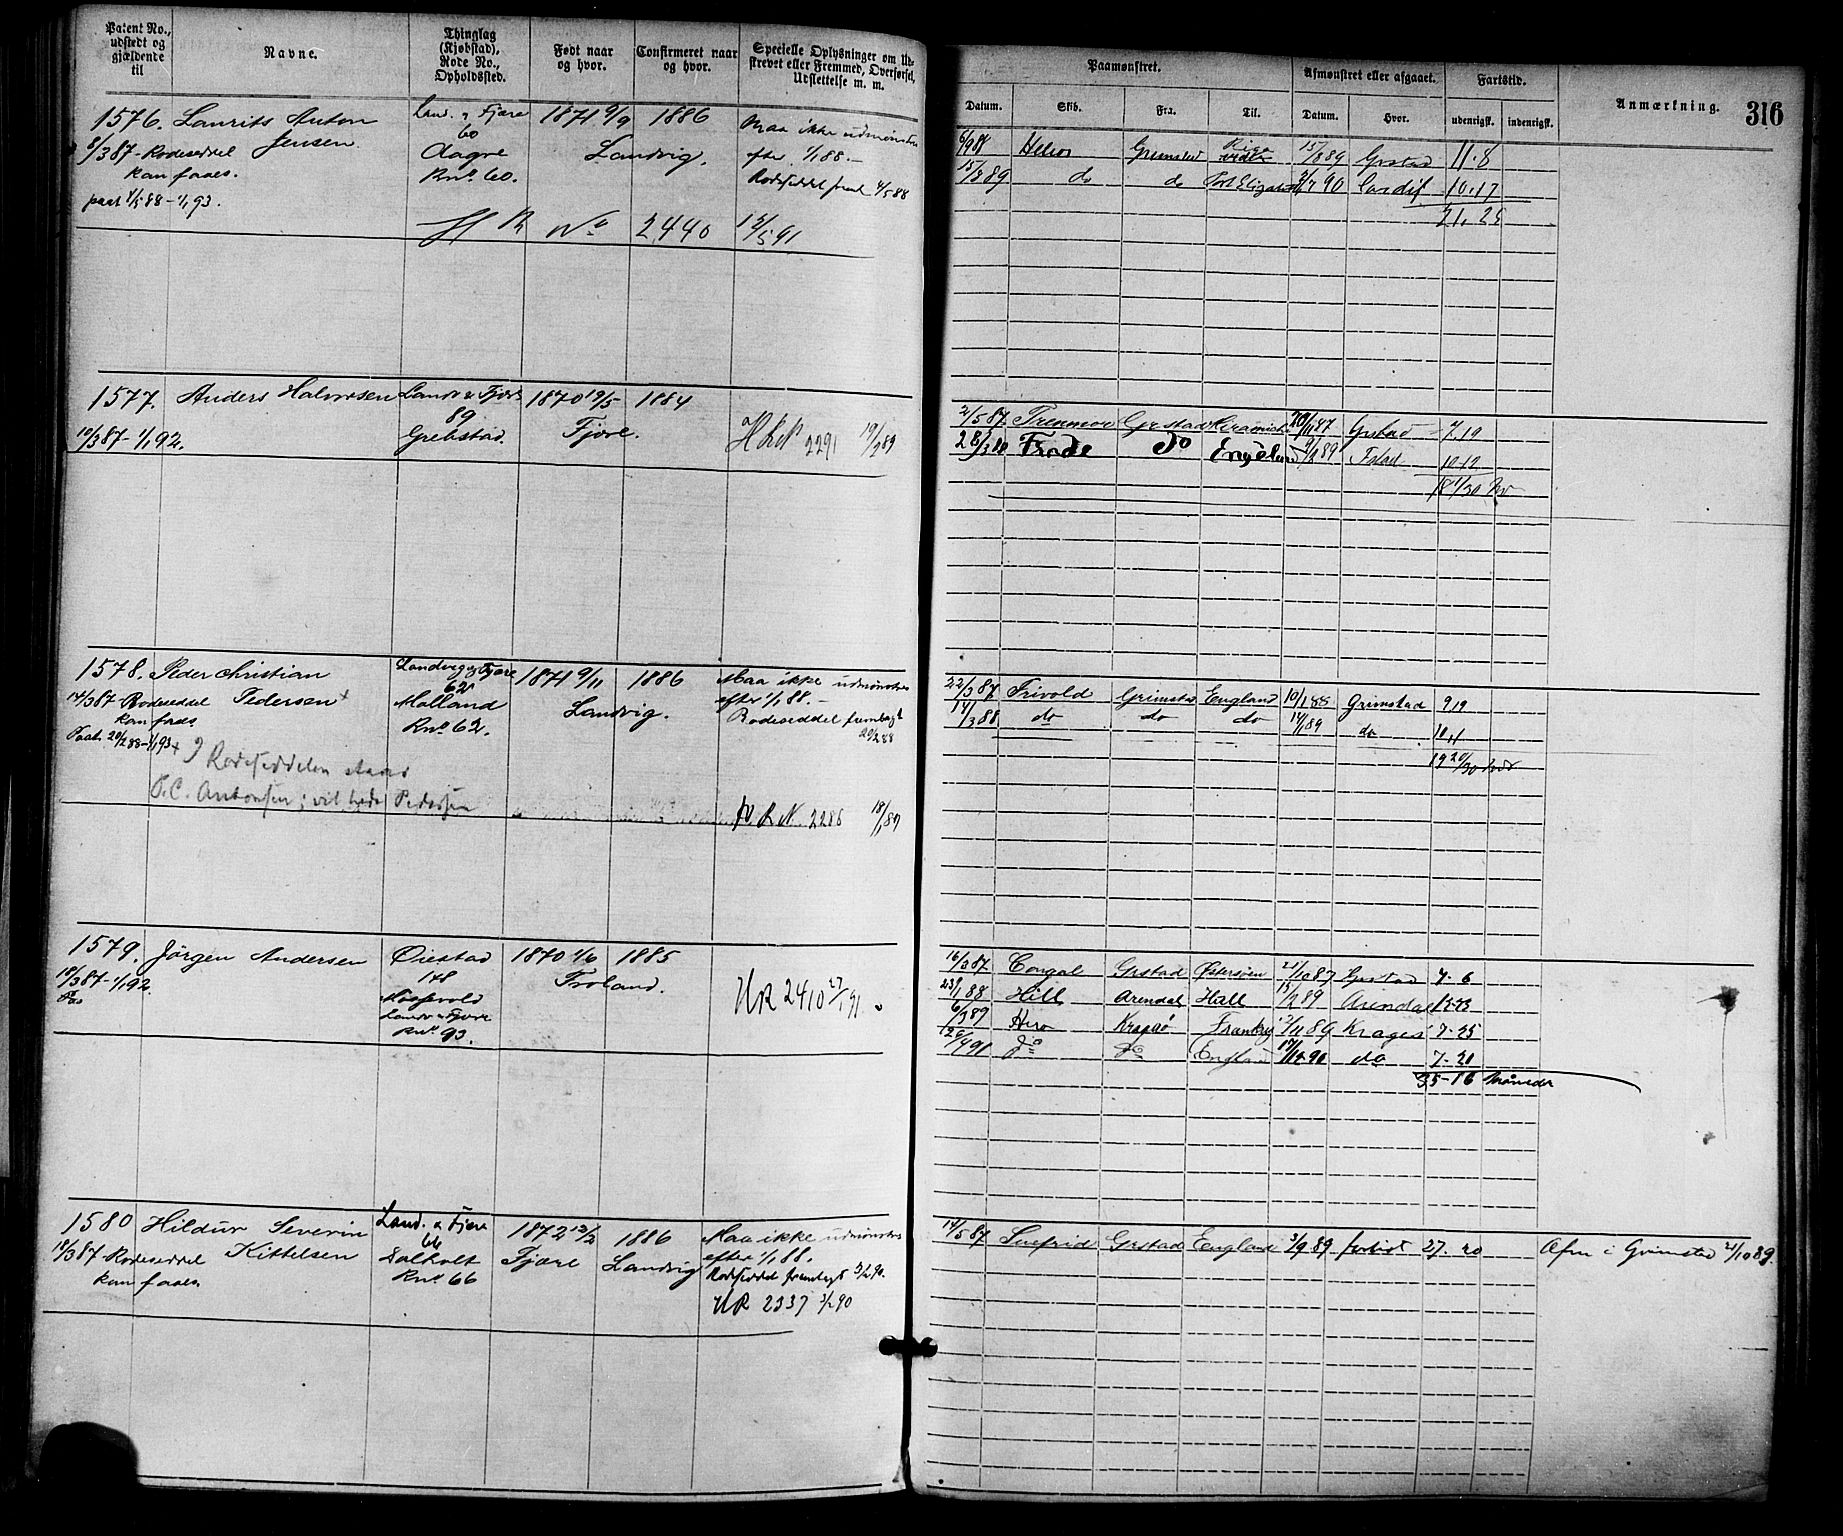 Patent No.,
udstedt og
gjældende
til
Navne.
Thinglag
(Kjøbstad),
Rode No.,
Opholdssted.
Født naar
og hvor.
Confirmeret naar
og hvor.
Specielle Oplysninger om Ud-
strevet eller Fremmed, Overførsel,
Udslettelse m. m.
Paamønstret.
Afmønstret eller afgaaet.
Fartstid.
Anmærkning.
316
Datum.
Skib.
Fra.
Til.
Datum.
Hvor.
udenrigsk.
indenrigsk.
1576. Laurits Anton
Jensen
8/3 87 - Rodeseddel
kan faaes.
paat 4/5 88 - 1/1 93.
Land. & Fjære
60
Aagre
Rno 60.
1871 9/9 1886
Landvig.
Maa ikke udmønstres
efter 1/1 88.-
Rodeseddel freml 4/5 88
H R No 2440 13/5 91
6/9 87 Helios Grimstad Riga 15/8 89 Grstad 11.8
15/8 89 do do Port Elizabeth 3/7 90 Cardif 10.17
21.25
1577. Anders Halvorsen
19/3 87 - 1/1 92.
Landv & Fjære
89
Grebstad.
1870 19/5 1884
Fjære.
H R No 2291 19/2 89
2/5 87 Trenmor Grstad 20/11 87 Grstad 7 19
28/3 88 Frode Do England 9/2 89 Fstad 10 12
18 1/30
1578. Peder Christian
Pedersen
14/3 87 Rodeseddel
kan faaes
Paat. 20/2 88 - 1/1 93
I Rodeseddelen staar
P. C. Antonsen; vil hede Pedersen
Landvig og Fjære
62
Molland
Rno 62.
1871 9/11 1886
Landvig.
Maa ikke udmønstres
efter 1/1 88.-
Rodeseddel fremlagt
20/2 88
H R N. 2286 18/1 89
22/3 87 Frivold Grimstad England 19/1 88 Grimstad 9 19
17/3 88 do do do 14/1 89 do 10 11
19 20/30
1579. Jörgen Andersen
18/3 87 - 1/1 92.
Øiestad
148
Landv & Fjære
Rno 93.
1870 1/6 1885
Froland.
HR 2410 27/1 91
16/3 87 Grstad Østersøen 21/10 87 Grstad 7-6
23/1 88 Hill Arendal Hall 13/2 89 Arendal 13-23
6/3 89 Hero Kragerø Frankrig 2/11 89 Kragerø 7-25
do do England 90 do 7-20
35-16 Måneder
1580 Hildur Severin
Kittelsen
18/3 87 - Rodeseddel
kan faaes
Land. & Fjære
66
Dalholt
Rno 66
1872 12/2 1886
Fjære Landvig
Maa ikke udmønstres
efter 1/1 88.
Rodeseddel fremlagt 3/2 90.
HR 2337 3/2 90
14/5 87 Sucfrid Grstad England 3/9 89 forlist 27. 20 Afm i Grimstad 21/10 89.